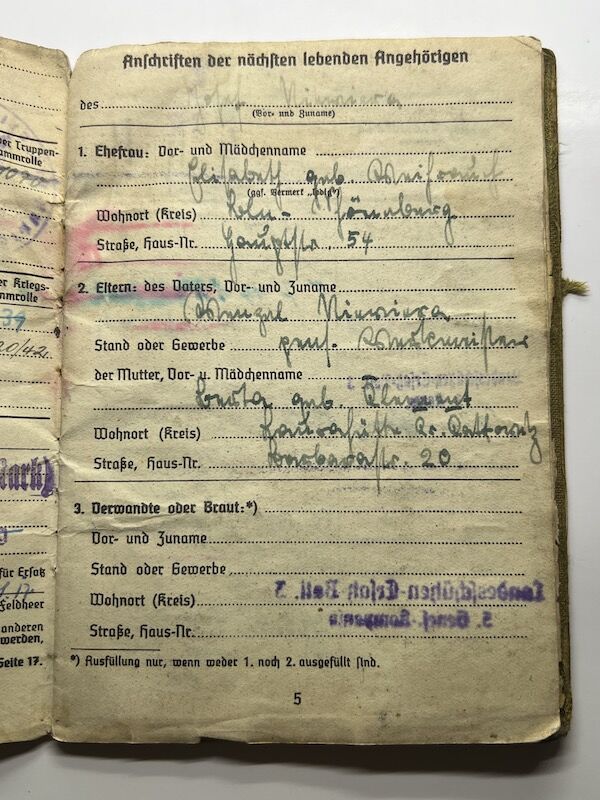 der Truppen-
ammrolle
er Kriegs-
mmrolle
20/42
für Ersatz
Feldheer
anderen
werden,
Seite 17.
Anschriften der nächsten lebenden Angehörigen
des Josef Niewiera
(Vor- und Zuname)
1. Ehefrau: Vor- und Mädchenname
Elisabeth geb. Weihrauch
(ggf. Vermerk „ledig")
Wohnort (Kreis) Köln-
Straße, Haus-Nr. Hauptstr. 54
2. Eltern: des Vaters, Vor- und Zuname
Wenzel Niewiera
Stand oder Gewerbe pens. Werkmeister
der Mutter, Vor- u. Mädchenname
geb. Klement
Wohnort (Kreis) Laurahütte Kr. Kattowitz
Straße, Haus-Nr. Barbarastr. 20
3. Verwandte oder Braut:*)
Vor- und Zuname
Stand oder Gewerbe
Wohnort (Kreis)
Landesschützen-Ersatz Batl. 3
Straße, Haus-Nr.
*) Ausfüllung nur, wenn weder 1. noch 2. ausgefüllt sind.
5